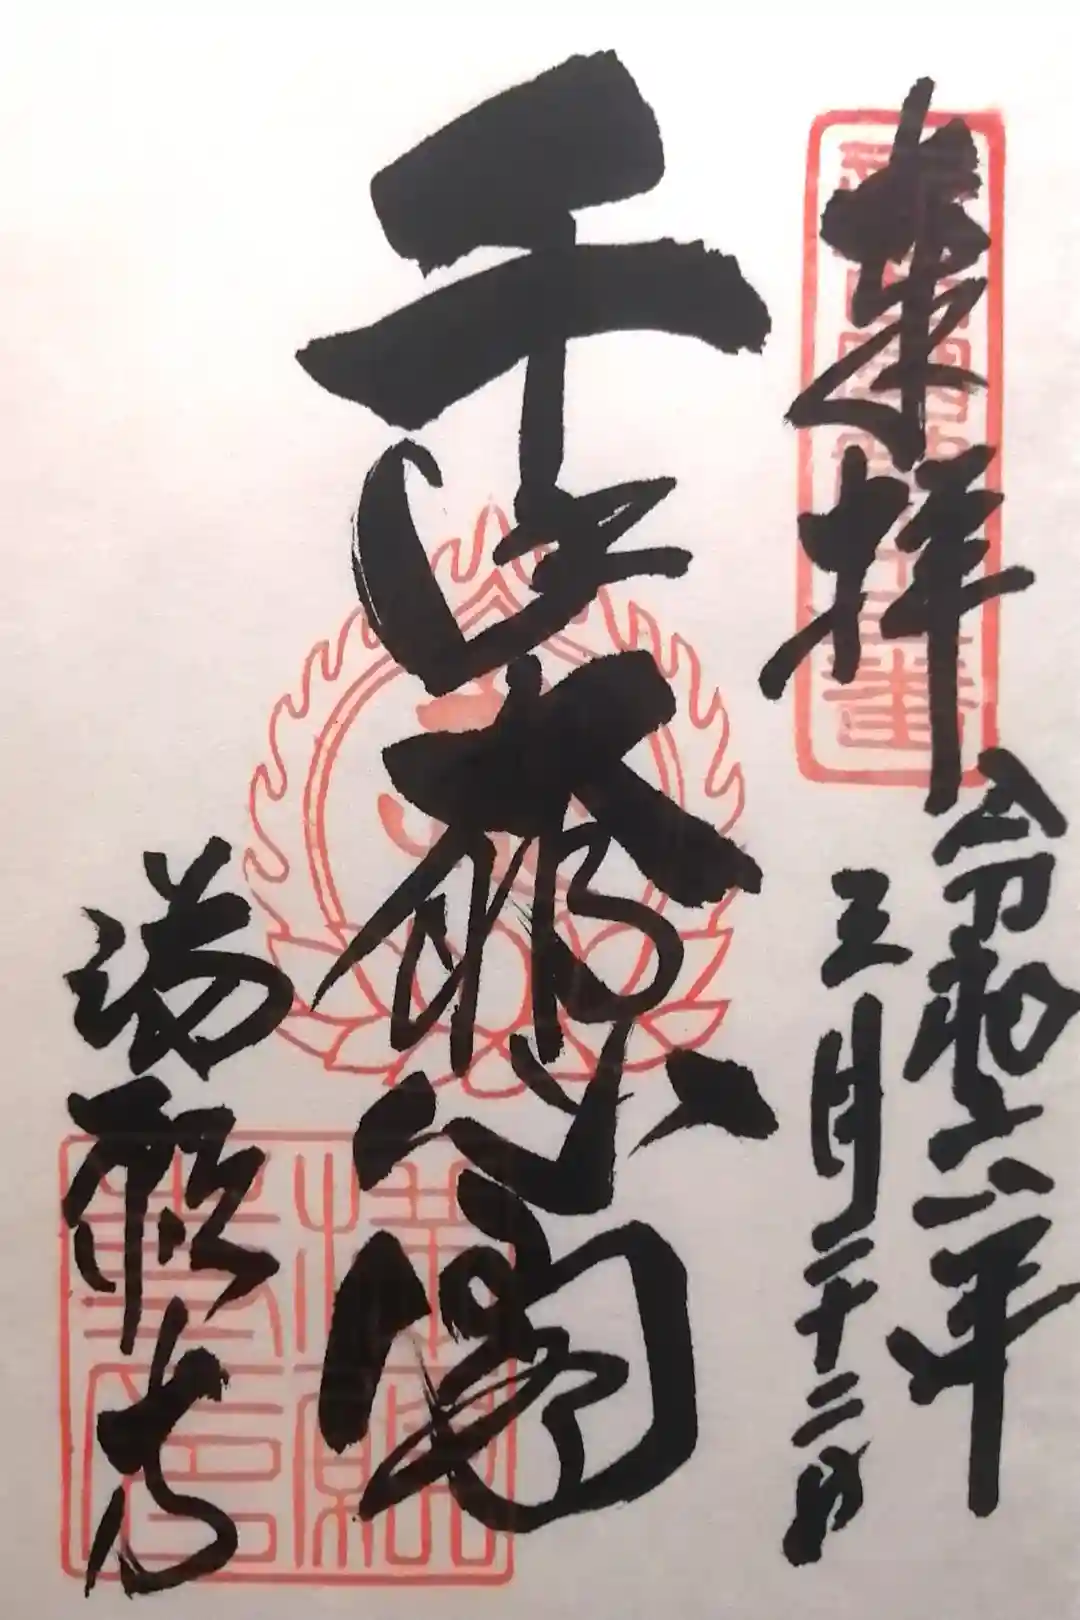 来拝
令和六年
三月二十二日
千手大悲閣
満願寺